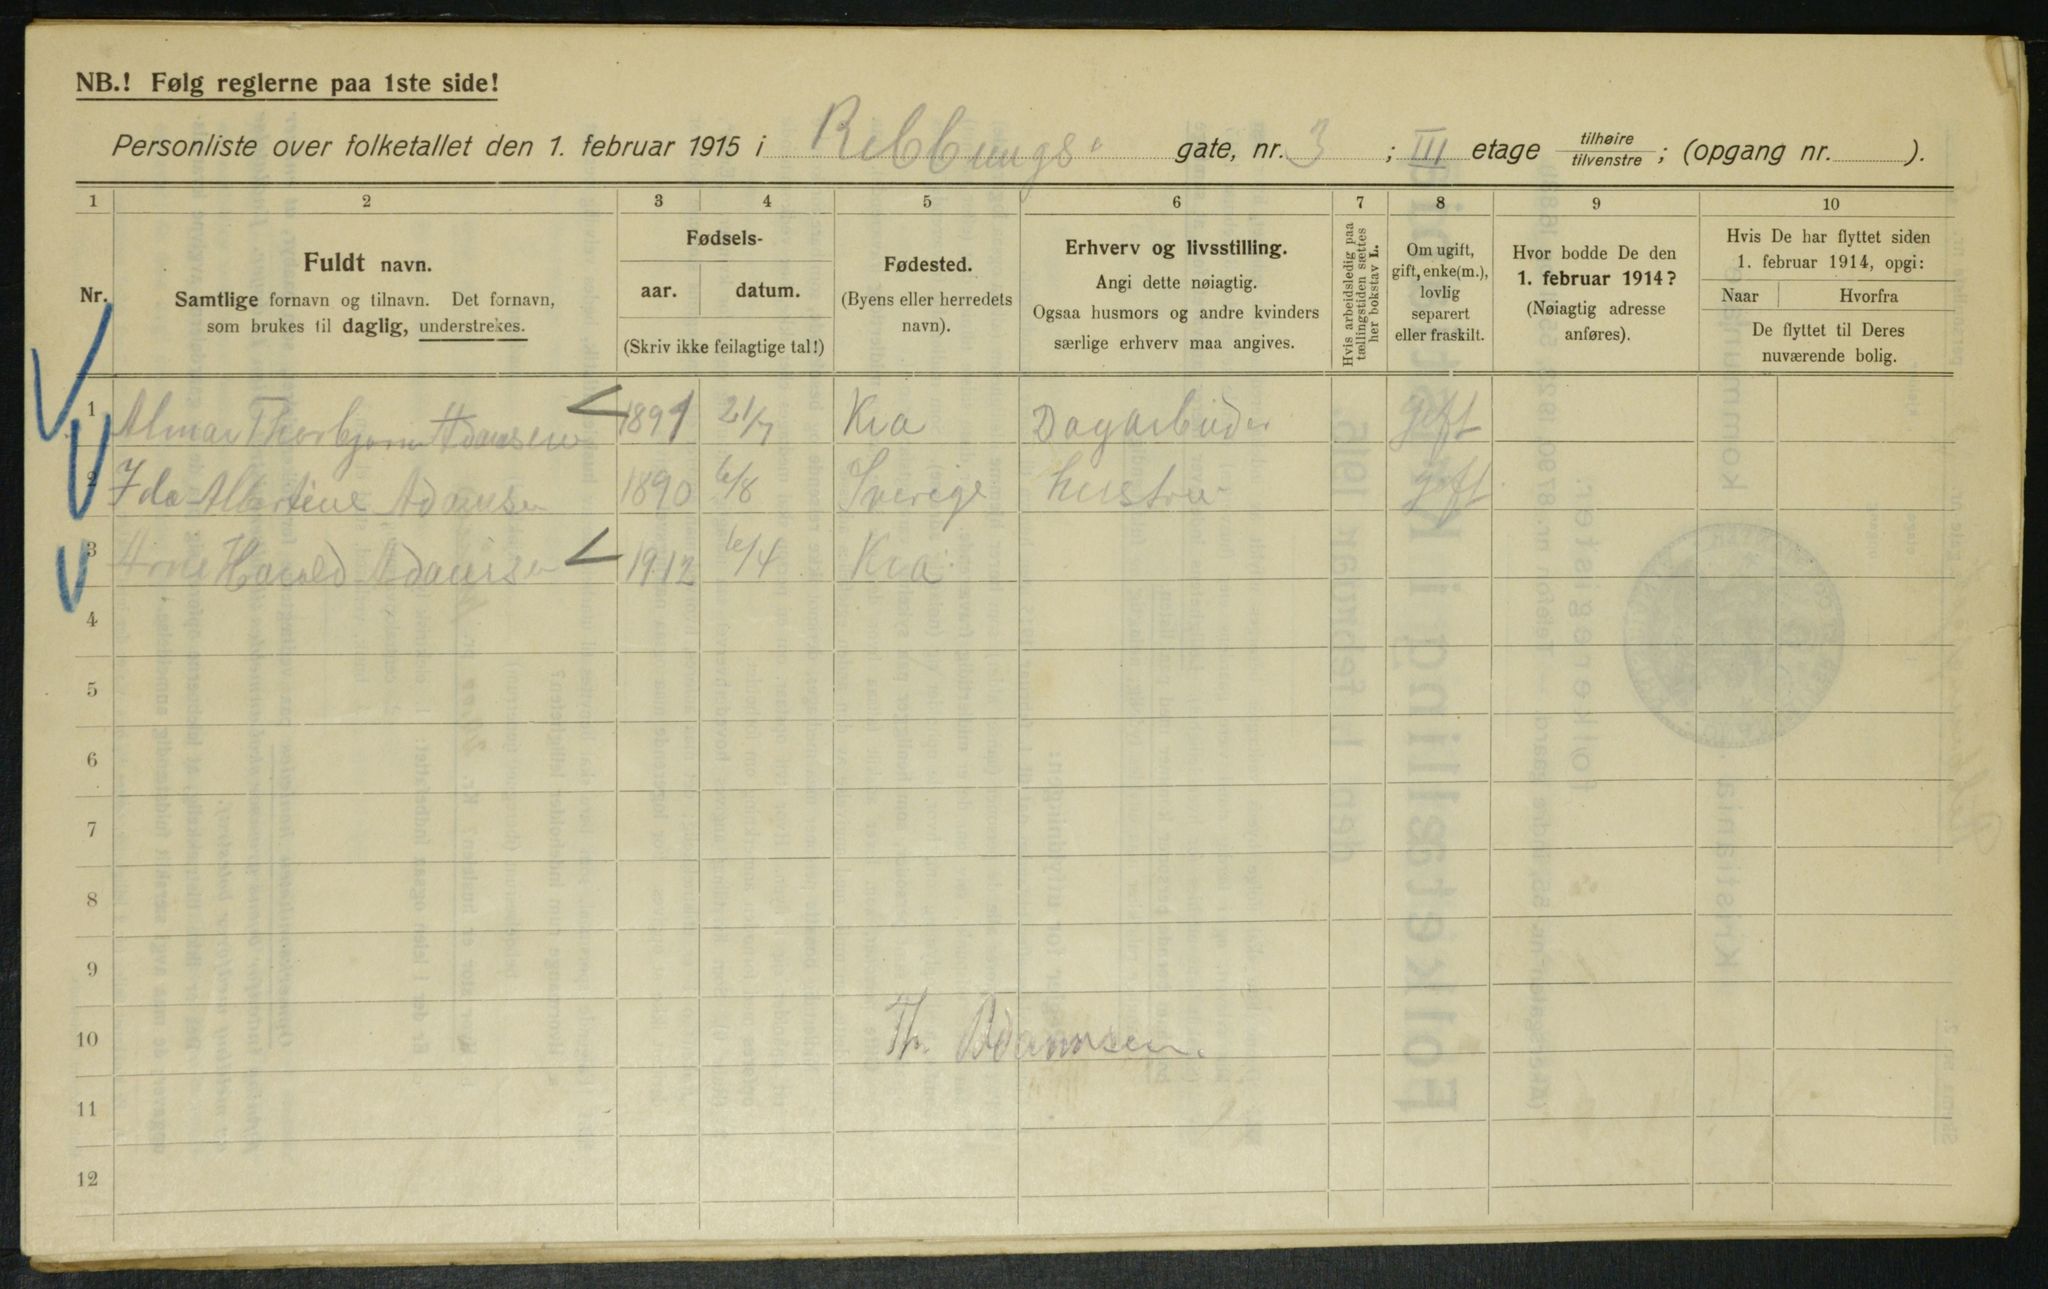 NB.! Følg reglerne paa 1ste side!
Personliste over folketallet den 1. februar 1915 i Ribbungs gate, nr. 3; III etage tilhøire tilvenstre; (opgang nr. ).
1 2 3 4 5 6 7 8 9 10
Nr.
Fuldt navn.
Samtlige fornavn og tilnavn. Det fornavn,
som brukes til daglig, understrekes.
Fødsels-
aar. datum.
(Skriv ikke feilagtige tal!)
Fødested.
(Byens eller herredets
navn).
Erhverv og livsstilling.
Angi dette nøiagtig.
Ogsaa husmors og andre kvinders
særlige erhverv maa angives.
Hvis arbeidsledig paa
tællingstiden sættes
her bokstav L.
Om ugift,
gift, enke(m.),
lovlig
separert
eller fraskilt.
Hvor bodde De den
1. februar 1914?
(Nøiagtig adresse
anføres).
Hvis De har flyttet siden
1. februar 1914, opgi:
Naar Hvorfra
De flyttet til Deres
nuværende bolig.
1 Almar Thorbjørn Adamsen 1891 21/7 Kra Dagarbeider gift
2 Ida Albertine Adamsen 1890 6/8 Sverige hustru gift
3 Arne Harald Adamsen 1912 6/4 Kra
4
5
6
7
8
9
10 Th. Adamsen.
11
12